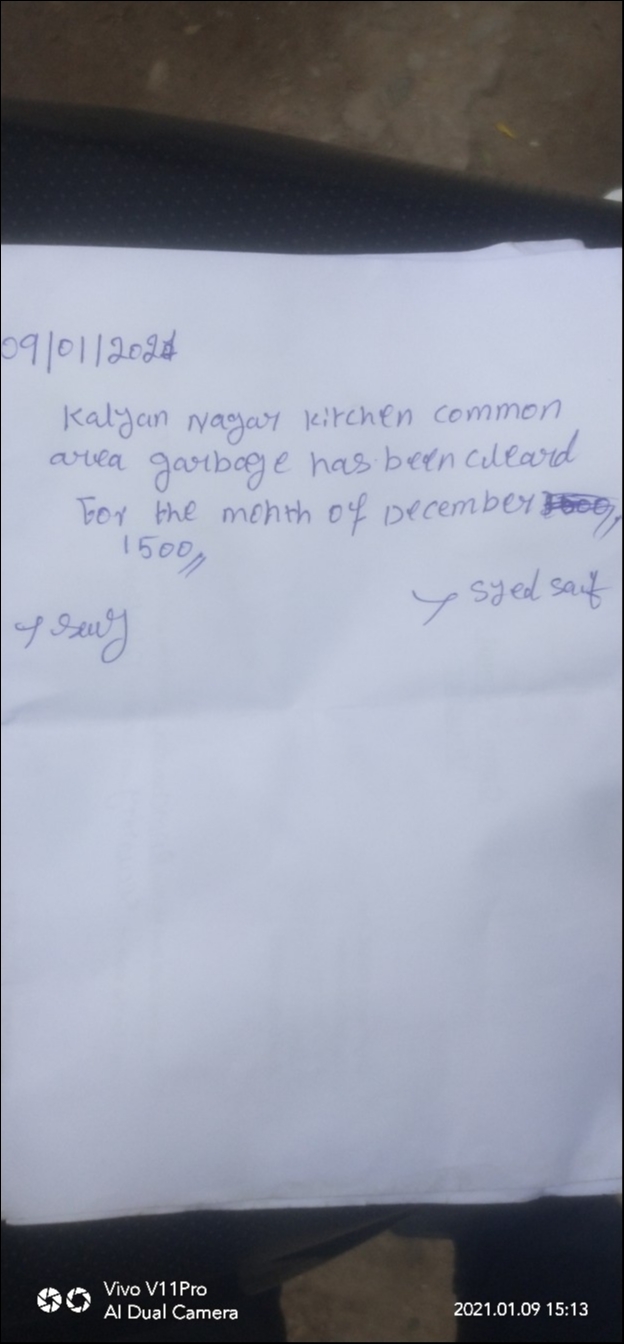 09/01/2021
Kalyan Nagar kitchen common
area garbage has been cleard
For the month of December
1500//
Syed saif
Vivo V11Pro
AI Dual Camera
2021.01.09 15:13